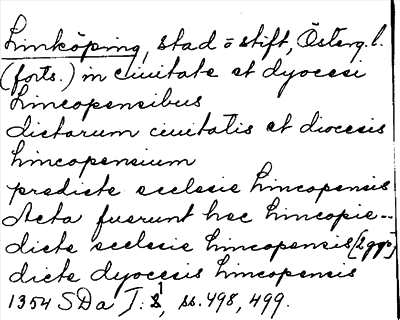 Linköping, stad o stift, Österg. l.
(forts.) in ciuitate et dyocesi
Lincopensibus
dictarum ciuitatis et diocesis
lincopensium
predicte ecclesie lincopensis
Acta fuerunt hec Lincopie --
dicte ecclesie lincopensis (2 ggr)
dicte dyocesis lincopensis
1354 SDa J: 1, ss. 498, 499.